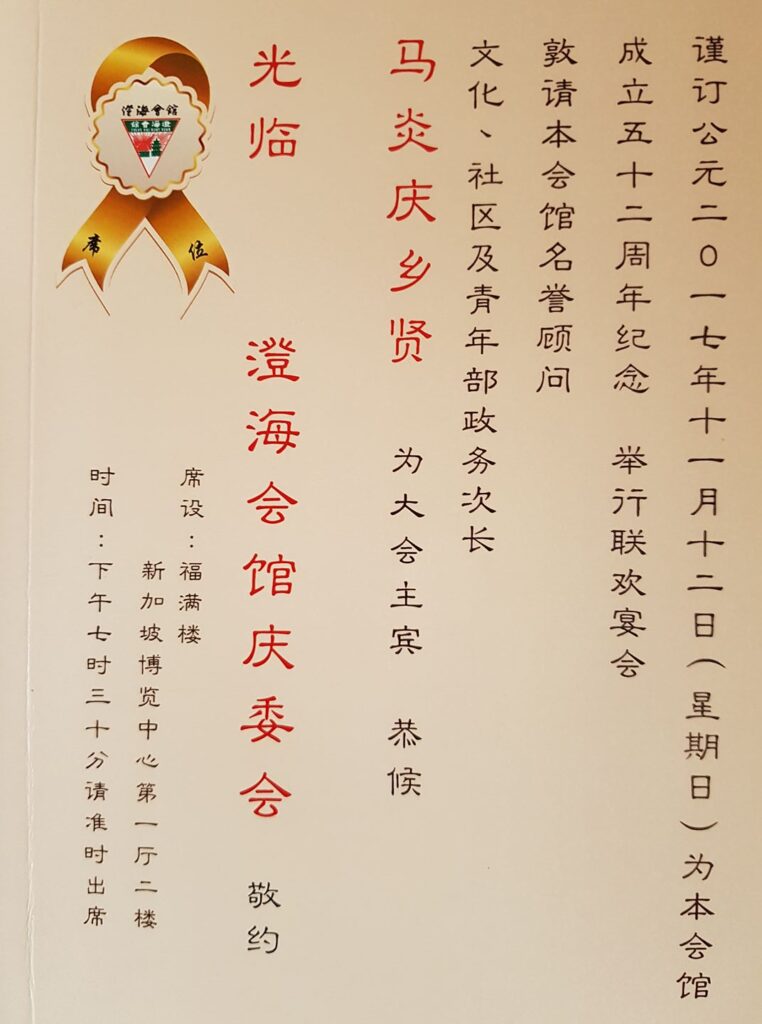 谨订公元二〇一七年十一月十二日(星期日)为本会馆
成立五十二周年纪念 举行联欢宴会
敦请本会馆名誉顾问
文化、社区及青年部政务次长
马炎庆乡贤 为大会主宾 恭候
光临
澄海会馆庆委会 敬约
席设:福满楼
新加坡博览中心第一厅二楼
时间:下午七时三十分请准时出席
澄海會館
館會海澄
席位